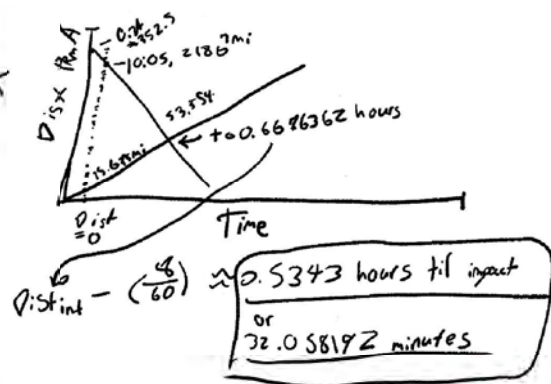 Dist
=352.5
10:05, 218.67mi
Dist
53.554
to 0.6676362 hours
15.675mi
Dist
=0
Time
Distint - (8/60) ≈ 0.5343 hours til impact
or
32.058192 minutes